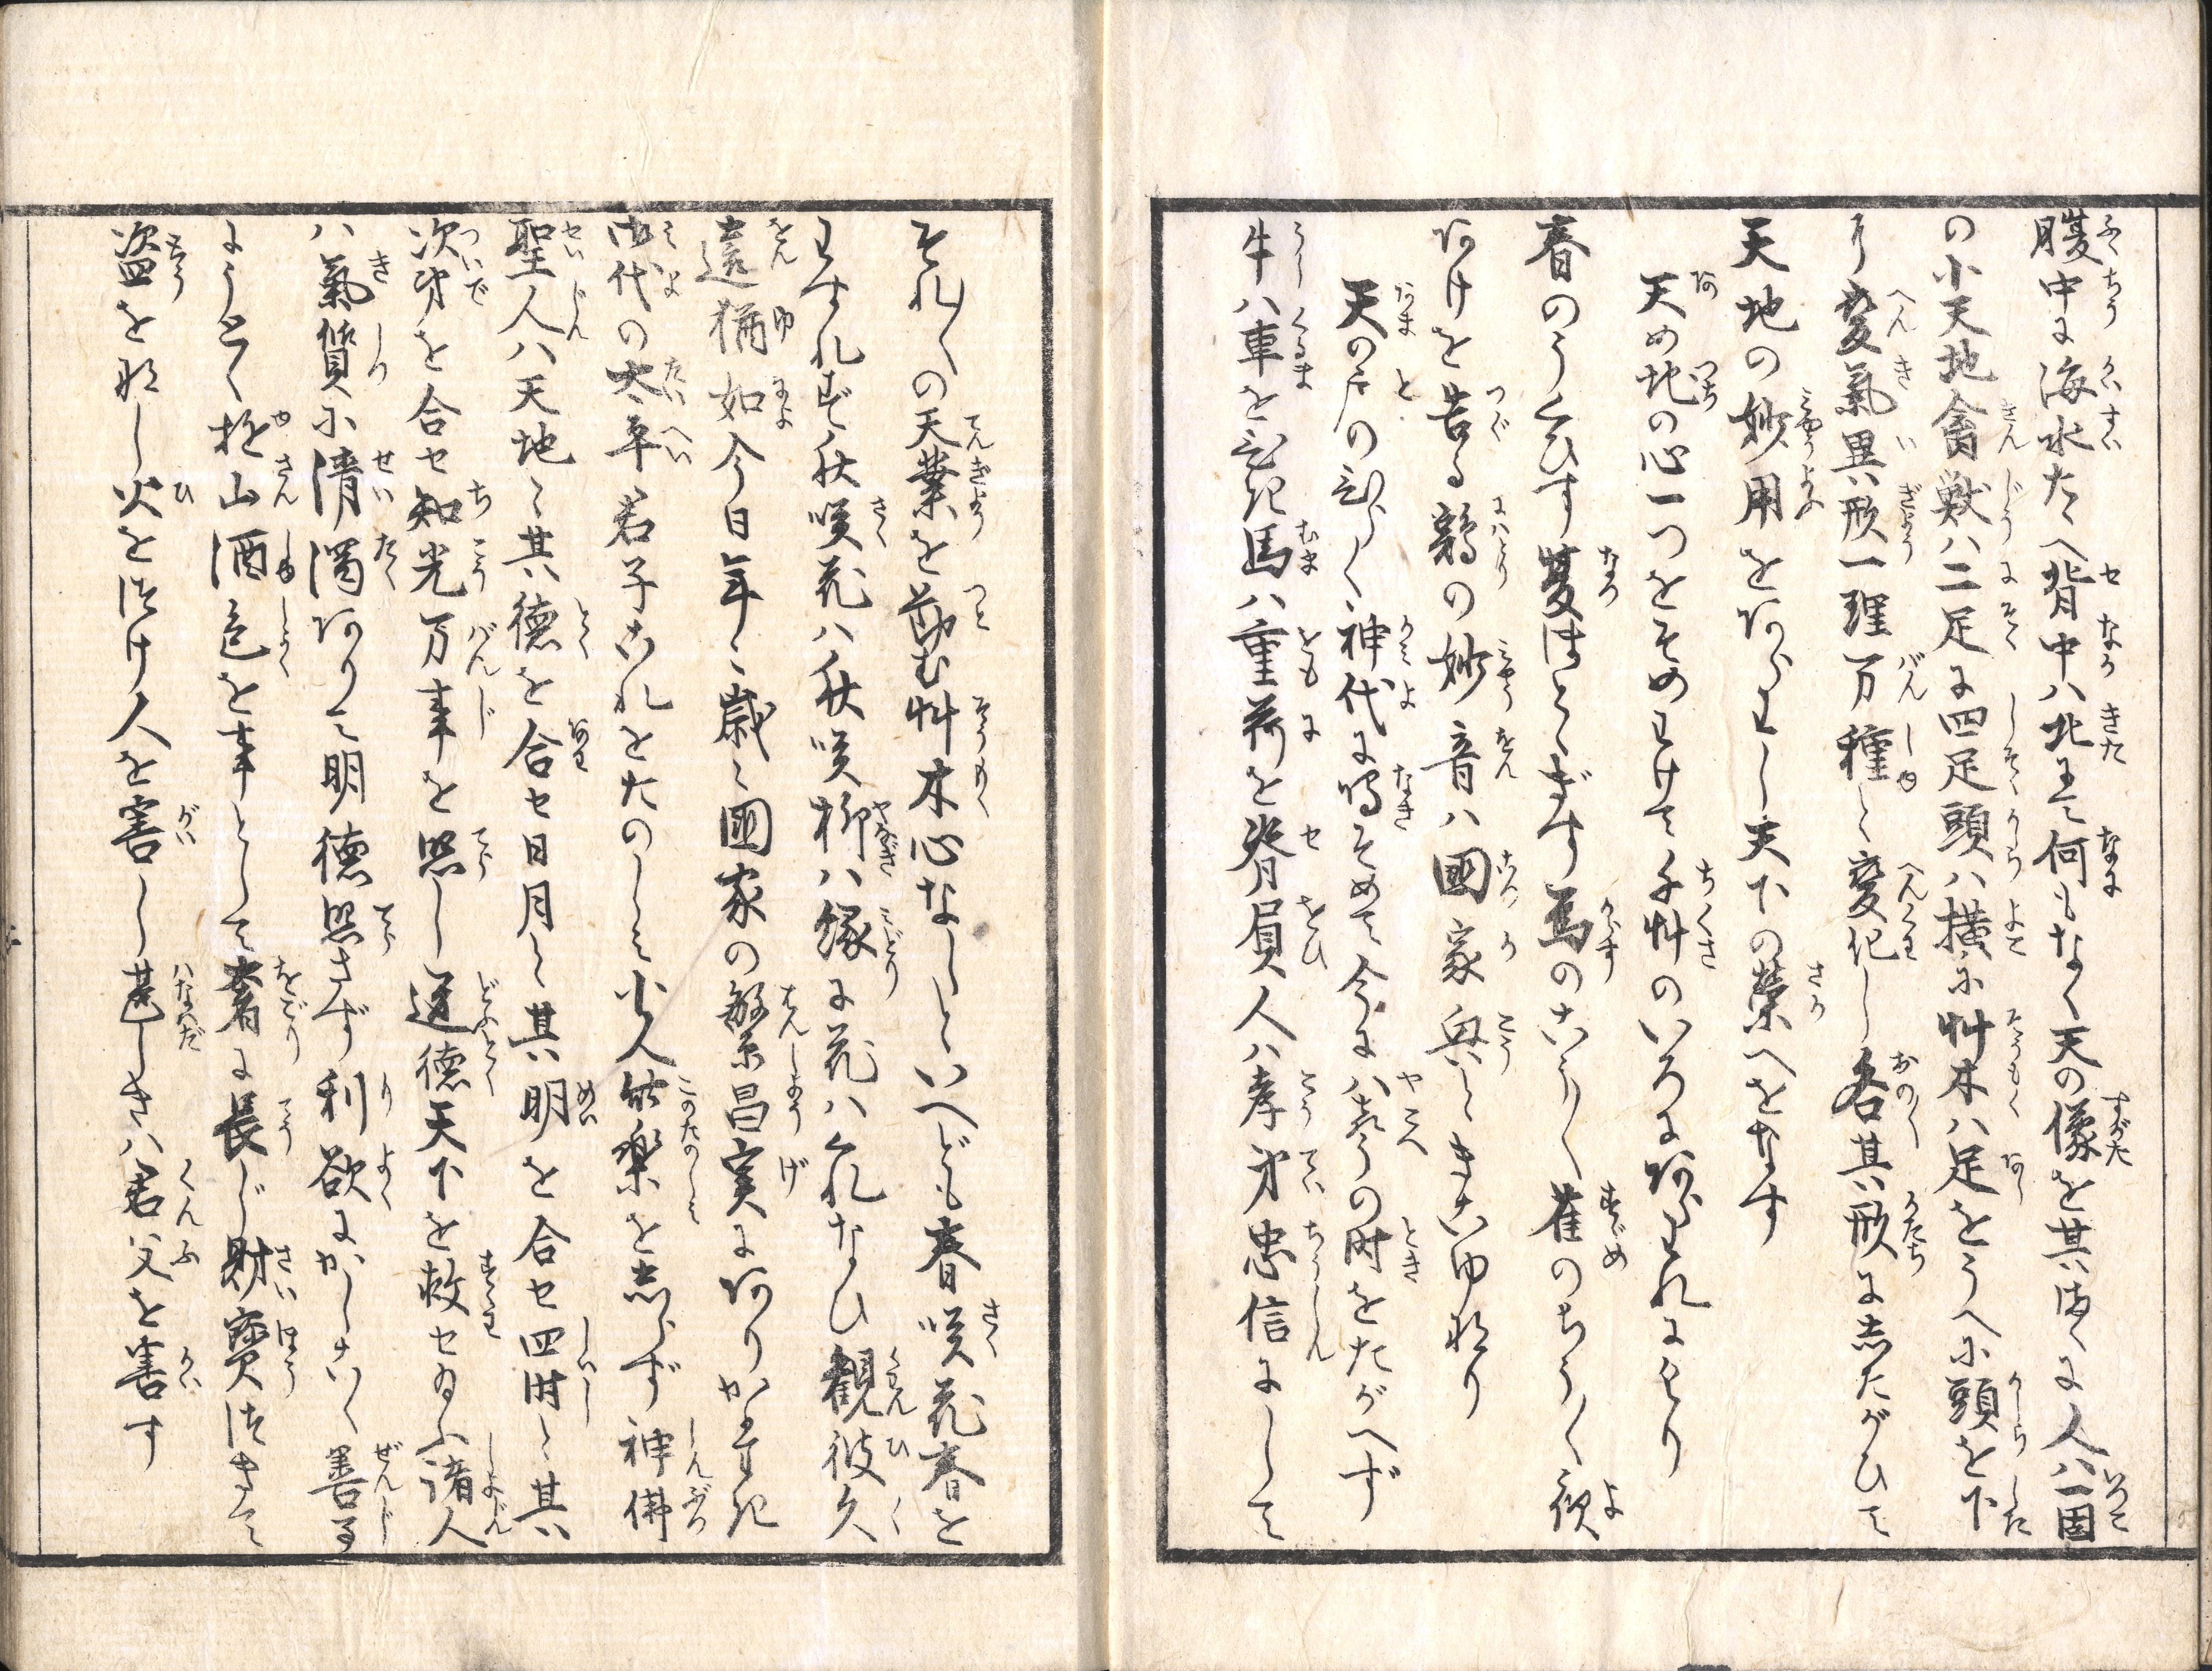 腹中に海水たゝへ背中ハ北にて何もなく天の像を其まゝに人ハ一箇
の小天地禽獣ハ二足に四足頭ハ横に艸木ハ足をうへに頭を下
り変氣異形一理万種と変化し各其形にしたがひて
天地の妙用をあらわし天下の榮へをなす
天め地の心一つをそめわけて千艸のいろにあらわれにけり
春のうぐひす夏ほとゝぎす烏のこゑ〳〵雀のちう〳〵夜
あけを告る鶏の妙音ハ國家興しきこゆなり
天の戸のひらく神代に鳴そめて今に八声の時をたがへず
牛ハ車をひき馬ハ重荷を背負人ハ孝弟忠信にして
それ〳〵の天業を勤む艸木心なしといへども春咲花春を
わすれず秋咲花ハ秋咲柳ハ緑に花ハくれなひ観彼久
遠猶如今日年〻歳〻國家の繁昌実にありがたき
御代の太平君子これをたのしミ小人此楽を志らず神佛
聖人ハ天地と其徳を合セ日月と其明を合セ四時と其
次第を合セ知光万事を照し道徳天下を救セ給ふ諸人
ハ氣質に清濁ありて明徳照さず利欲にかしこく善事
にうとく遊山酒色を事として奢に長じ財寳つきて
盗をなし火をつけ人を害し甚しきハ君父を害す